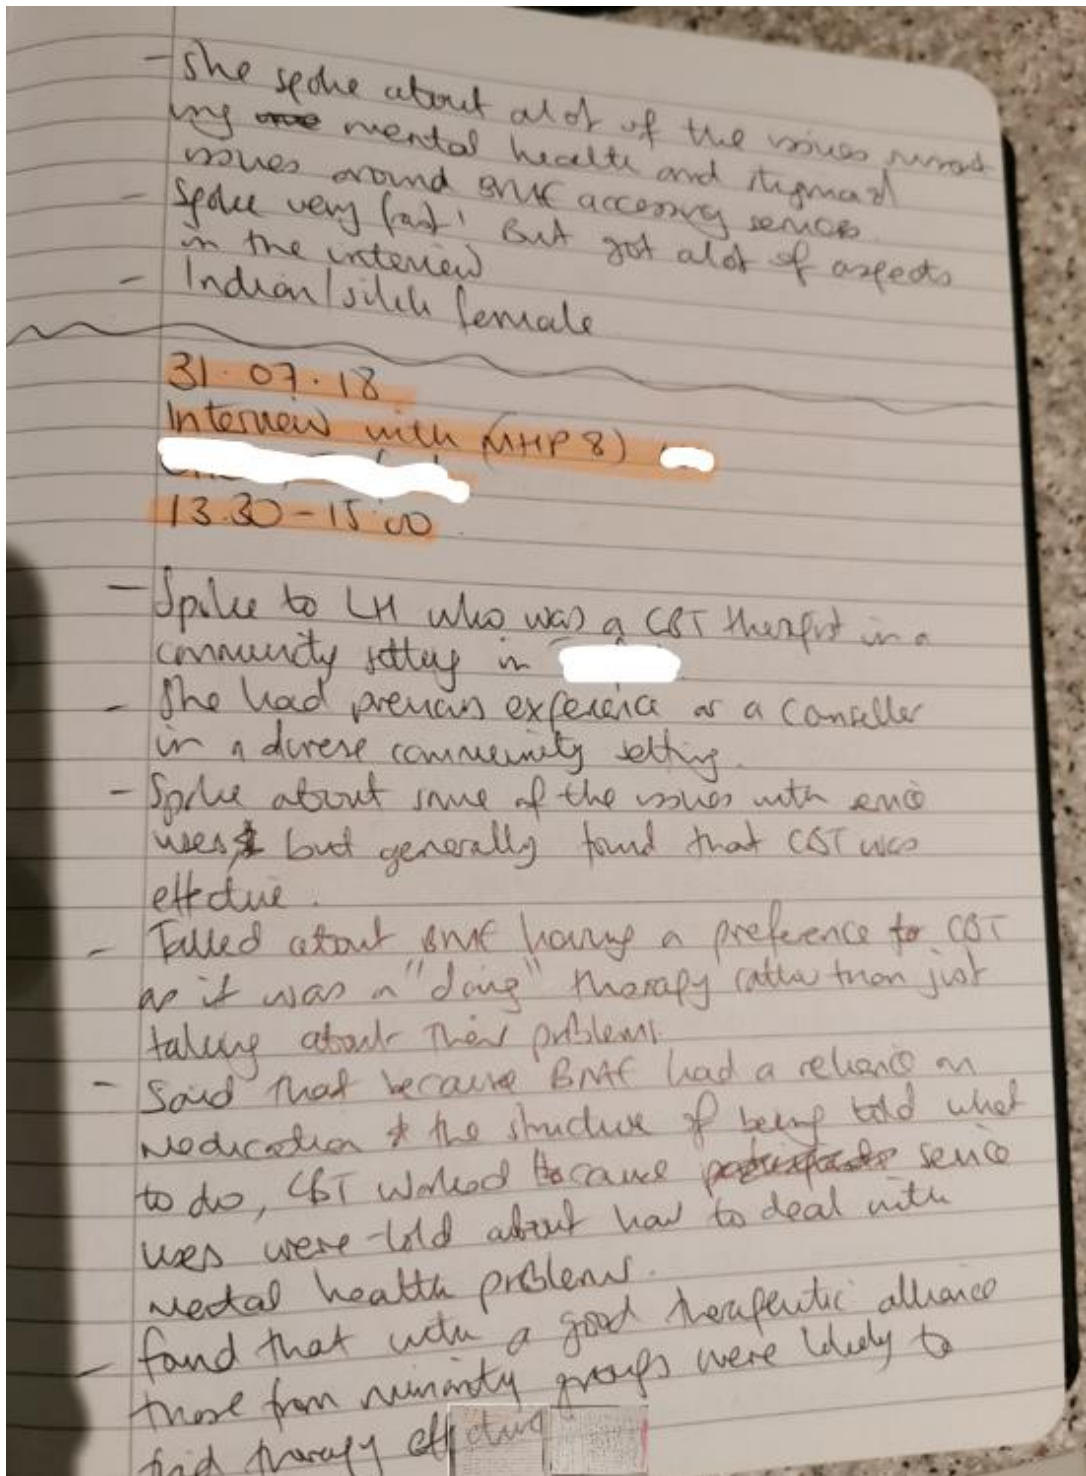 - She spoke about alot of the issues surround
ing mental health and stigma &
issues around BME accessing services.
- Spoke very fast! But got alot of aspects
in the interview
- Indian/sikh female
31.07.18
Interview with (MHP 8)
13.30-15.00
- Spoke to LH who was a CBT therapist in a
community setting in
- She had previous experience as a Counsellor
in a diverse community setting.
- Spoke about some of the issues with service
users but generally found that CBT was
effective.
- Talked about BME having a preference to CBT
as it was a "doing" therapy rather than just
talking about their problems.
- Said that because BME had a reliance on
medication & the structure of being told what
to do, CBT worked because service
users were told about how to deal with
mental health problems.
- found that with a good therapeutic alliance
those from minority groups were likely to
find therapy effective